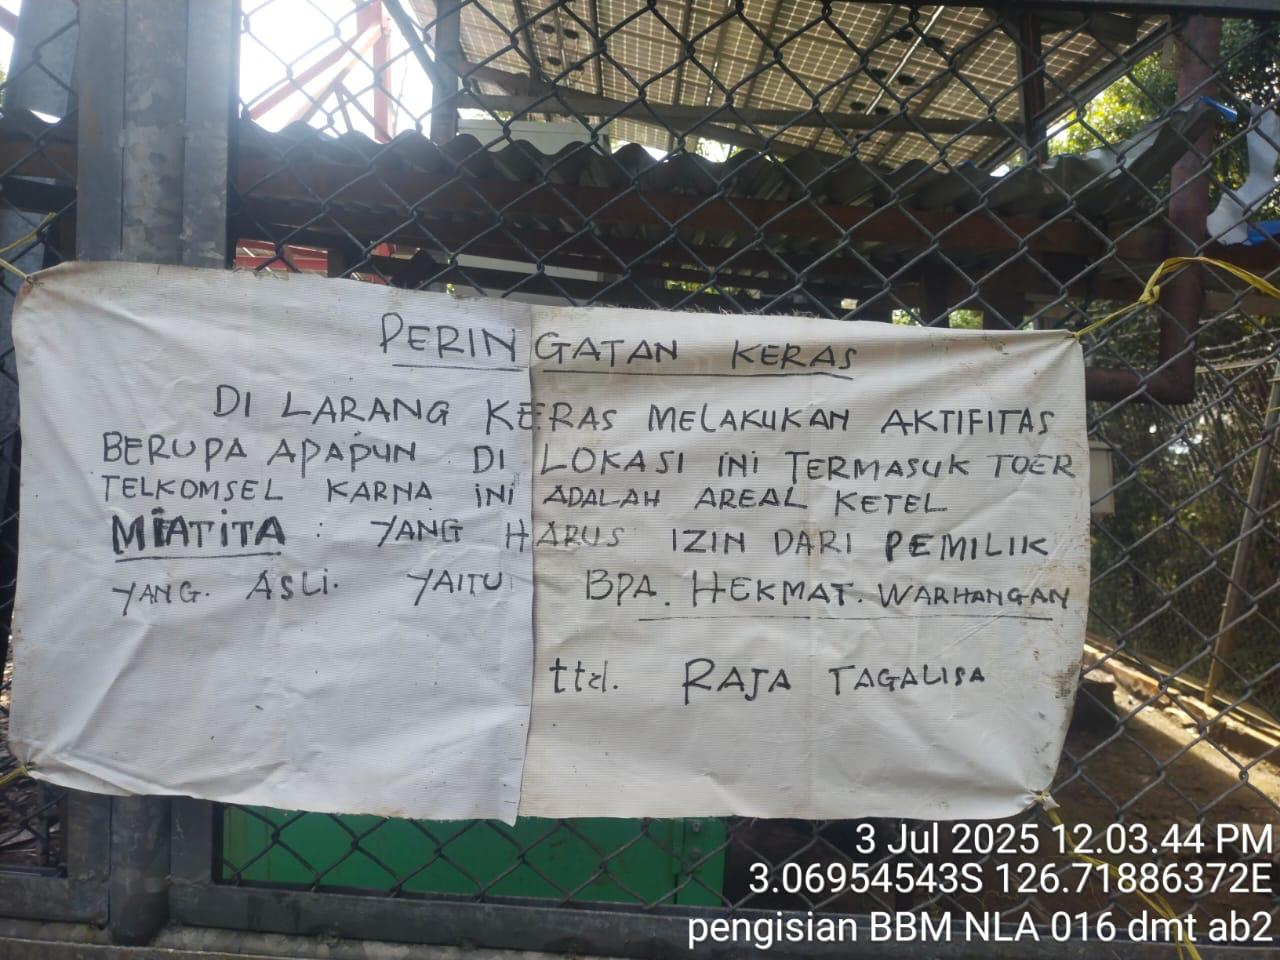 PERINGATAN KERAS
DI LARANG KERAS MELAKUKAN AKTIFITAS
BERUPA APAPUN DI LOKASI INI TERMASUK TOER
TELKOMSEL KARNA INI ADALAH AREAL KETEL
MIATITA : YANG HARUS IZIN DARI PEMILIK
YANG. ASLI. YAITU BPA. HEKMAT. WARHANGAN
ttd. RAJA TAGALISA
3 Jul 2025 12.03.44 PM
3.06954543S 126.71886372E
pengisian BBM NLA 016 dmt ab2